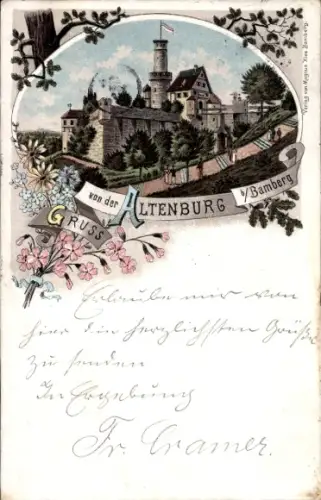 Verlag von
Gruss
von der
Altenburg
b/Bamberg
Erlaube mir von
hier die herzlichsten Grüße
zu senden
In Ergebung
Fr. Cramer.